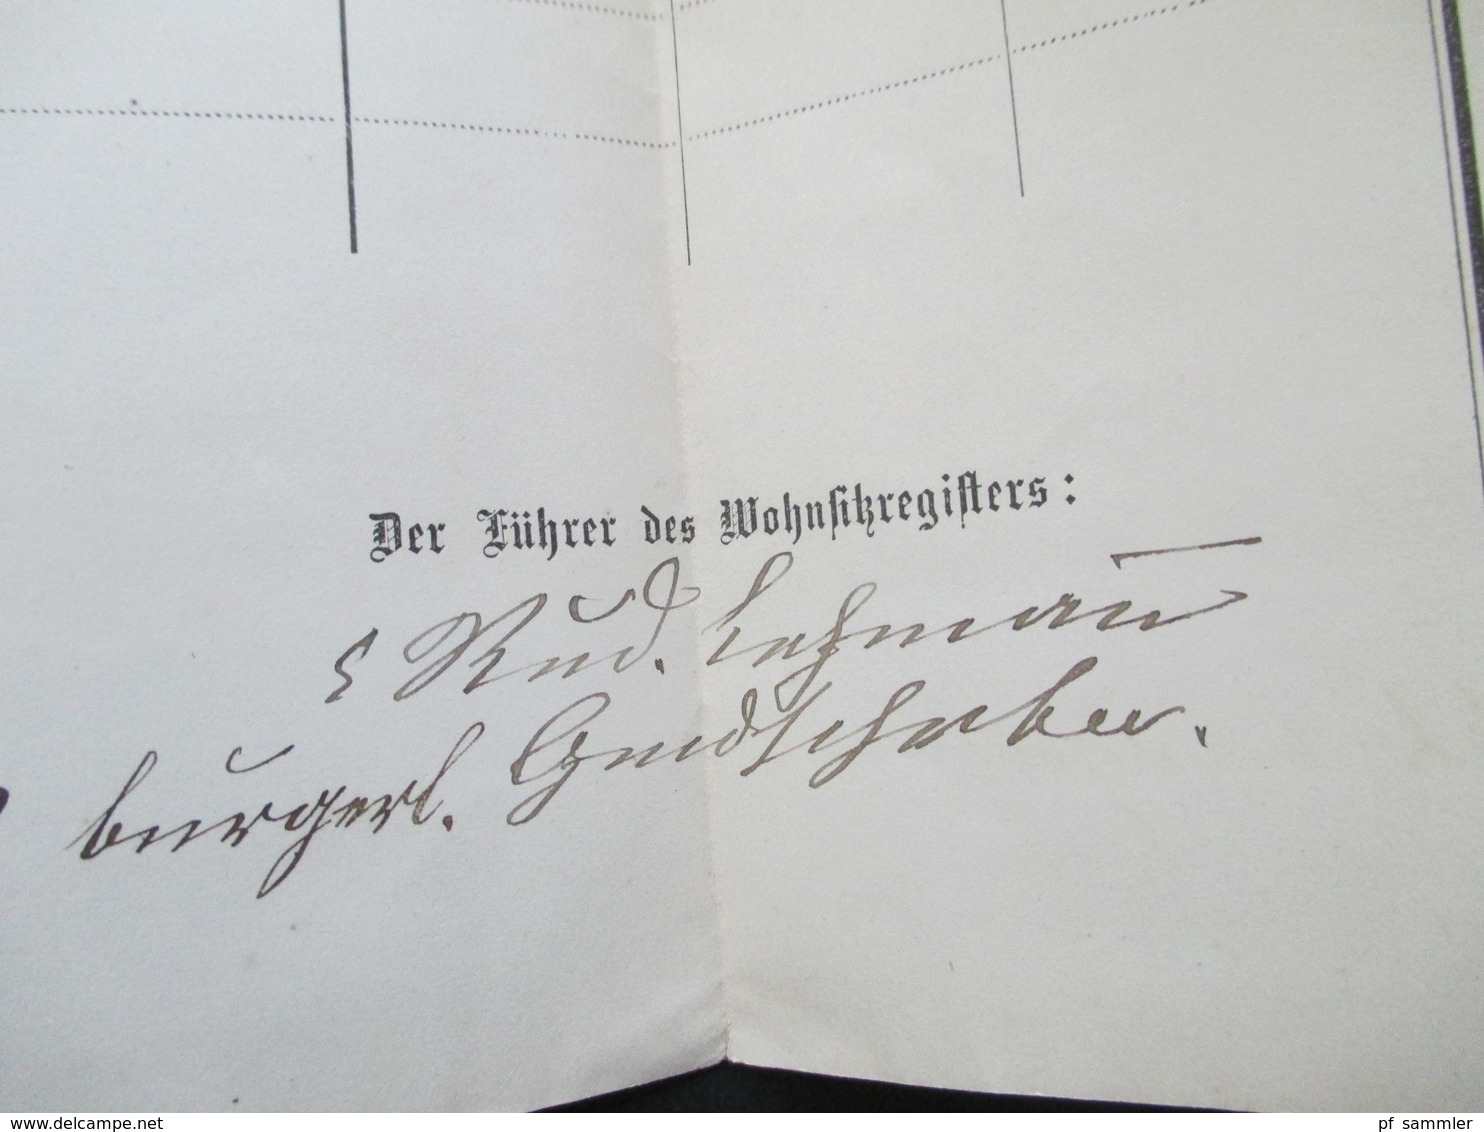 Der Führer des Wohnsitzregisters:
Rud. Lehmann
bürgerl. Gmdschrbr.
www.delcampe.net
pf_sammler